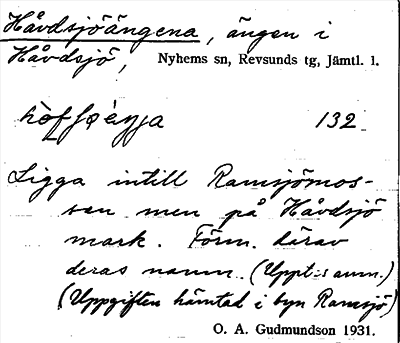 Håvdsjöängena, ängen i
Håvdsjö, Nyhems sn, Revsunds tg, Jämtl. l.
132
Ligga intill Ramsjömos-
sen men på Håvdsjö
mark. Förm. därav
deras namn. (Uppt:s anm.)
(Uppgiften hämtad i byn Ramsjö)
O. A. Gudmundson 1931.